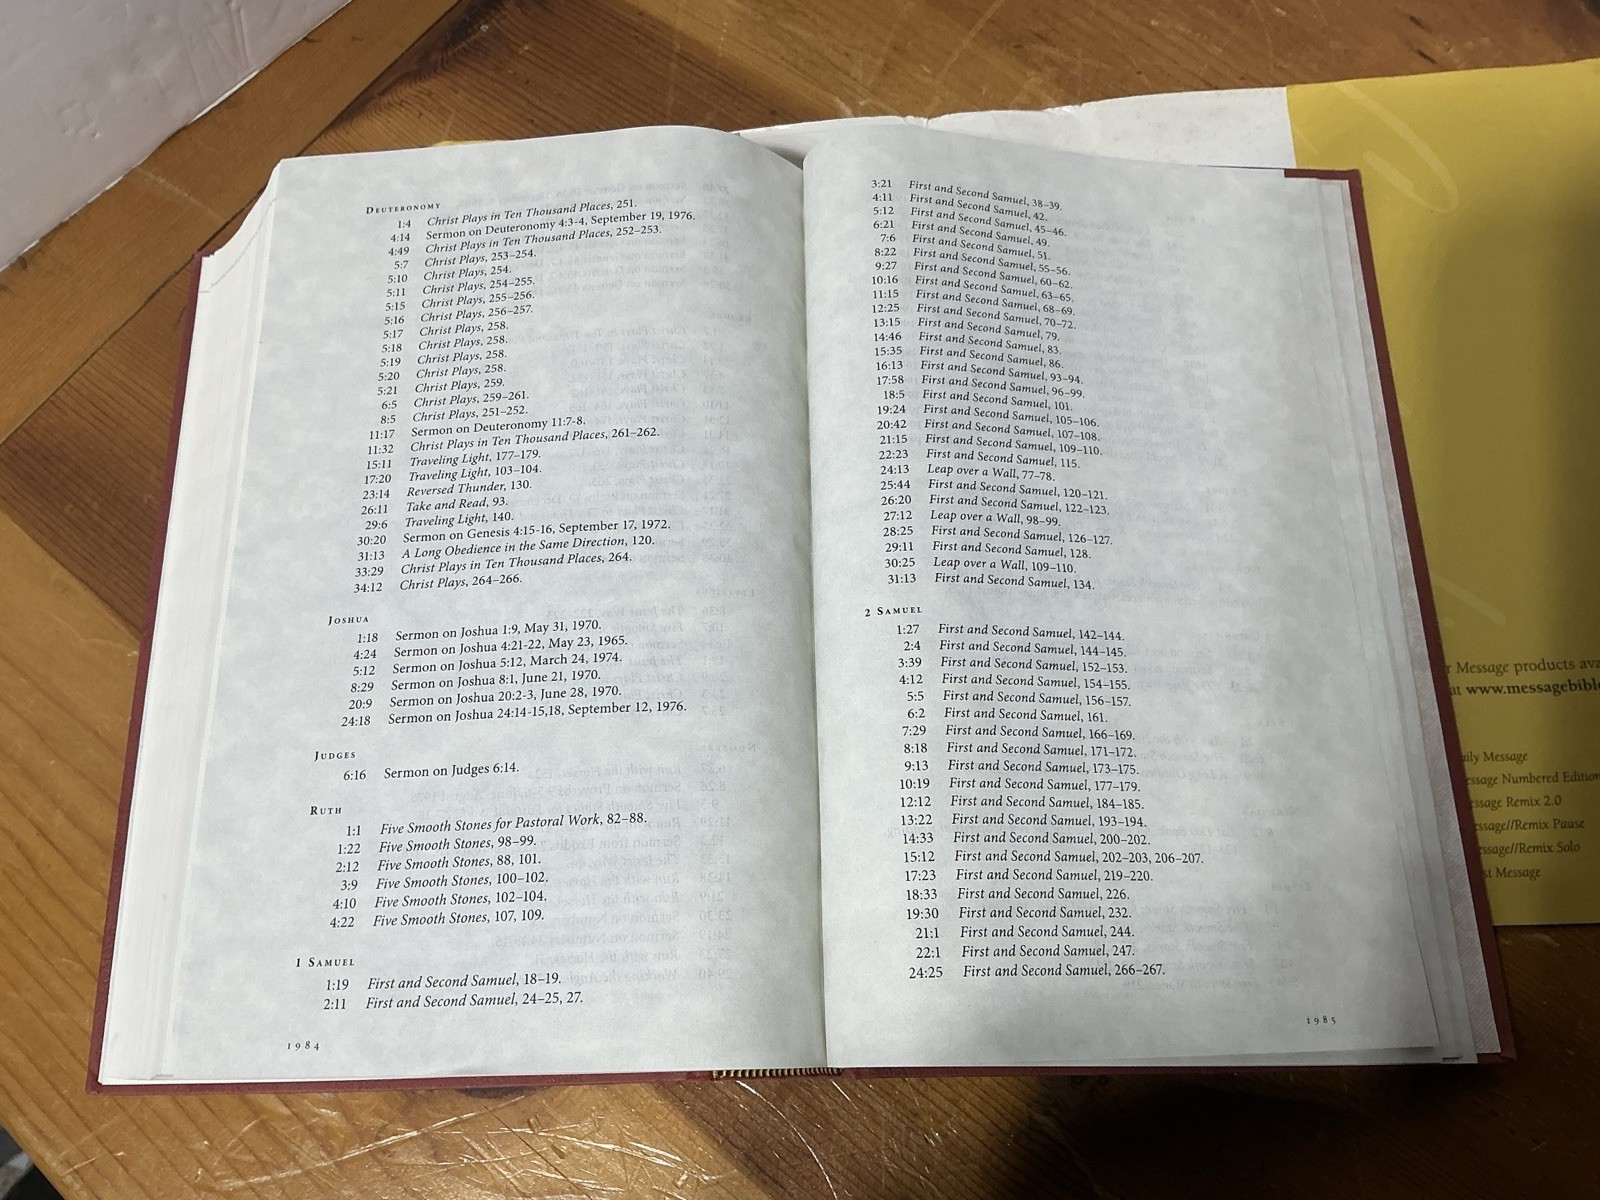 DEUTERONOMY
1:4 Christ Plays in Ten Thousand Places, 251.
4:14 Sermon on Deuteronomy 4:3-4, September 19, 1976.
4:49 Christ Plays in Ten Thousand Places, 252–253.
5:7 Christ Plays, 253–254.
5:10 Christ Plays, 254.
5:11 Christ Plays, 254–255.
5:15 Christ Plays, 255–256.
5:16 Christ Plays, 256–257.
5:17 Christ Plays, 258.
5:18 Christ Plays, 258.
5:19 Christ Plays, 258.
5:20 Christ Plays, 258.
5:21 Christ Plays, 259.
6:5 Christ Plays, 259–261.
8:5 Christ Plays, 251–252.
11:17 Sermon on Deuteronomy 11:7-8.
11:32 Christ Plays in Ten Thousand Places, 261–262.
15:11 Traveling Light, 177–179.
17:20 Traveling Light, 103–104.
23:14 Reversed Thunder, 130.
26:11 Take and Read, 93.
29:6 Traveling Light, 140.
30:20 Sermon on Genesis 4:15-16, September 17, 1972.
31:13 A Long Obedience in the Same Direction, 120.
33:29 Christ Plays in Ten Thousand Places, 264.
34:12 Christ Plays, 264–266.
JOSHUA
1:18 Sermon on Joshua 1:9, May 31, 1970.
4:24 Sermon on Joshua 4:21-22, May 23, 1965.
5:12 Sermon on Joshua 5:12, March 24, 1974.
8:29 Sermon on Joshua 8:1, June 21, 1970.
20:9 Sermon on Joshua 20:2-3, June 28, 1970.
24:18 Sermon on Joshua 24:14-15,18, September 12, 1976.
JUDGES
6:16 Sermon on Judges 6:14.
RUTH
1:1 Five Smooth Stones for Pastoral Work, 82–88.
1:22 Five Smooth Stones, 98–99.
2:12 Five Smooth Stones, 88, 101.
3:9 Five Smooth Stones, 100–102.
4:10 Five Smooth Stones, 102–104.
4:22 Five Smooth Stones, 107, 109.
1 SAMUEL
1:19 First and Second Samuel, 18–19.
2:11 First and Second Samuel, 24–25, 27.
1984
3:21 First and Second Samuel, 38–39.
4:11 First and Second Samuel, 42.
5:12 First and Second Samuel, 45–46.
6:21 First and Second Samuel, 49.
7:6 First and Second Samuel, 51.
8:22 First and Second Samuel, 55–56.
9:27 First and Second Samuel, 60–62.
10:16 First and Second Samuel, 63–65.
11:15 First and Second Samuel, 68–69.
12:25 First and Second Samuel, 70–72.
13:15 First and Second Samuel, 79.
14:46 First and Second Samuel, 83.
15:35 First and Second Samuel, 86.
16:13 First and Second Samuel, 93–94.
17:58 First and Second Samuel, 96–99.
18:5 First and Second Samuel, 101.
19:24 First and Second Samuel, 105–106.
20:42 First and Second Samuel, 107–108.
21:15 First and Second Samuel, 109–110.
22:23 First and Second Samuel, 115.
24:13 Leap over a Wall, 77–78.
25:44 First and Second Samuel, 120–121.
26:20 First and Second Samuel, 122–123.
27:12 Leap over a Wall, 98–99.
28:25 First and Second Samuel, 126–127.
29:11 First and Second Samuel, 128.
30:25 Leap over a Wall, 109–110.
31:13 First and Second Samuel, 134.
2 SAMUEL
1:27 First and Second Samuel, 142–144.
2:4 First and Second Samuel, 144–145.
3:39 First and Second Samuel, 152–153.
4:12 First and Second Samuel, 154–155.
5:5 First and Second Samuel, 156–157.
6:2 First and Second Samuel, 161.
7:29 First and Second Samuel, 166–169.
8:18 First and Second Samuel, 171–172.
9:13 First and Second Samuel, 173–175.
10:19 First and Second Samuel, 177–179.
12:12 First and Second Samuel, 184–185.
13:22 First and Second Samuel, 193–194.
14:33 First and Second Samuel, 200–202.
15:12 First and Second Samuel, 202–203, 206–207.
17:23 First and Second Samuel, 219–220.
18:33 First and Second Samuel, 226.
19:30 First and Second Samuel, 232.
21:1 First and Second Samuel, 244.
22:1 First and Second Samuel, 247.
24:25 First and Second Samuel, 266–267.
1985
r Message products ava
at www.messagebible
ily Message
ssage Numbered Edition
ssage Remix 2.0
ssage//Remix Pause
ssage//Remix Solo
st Message